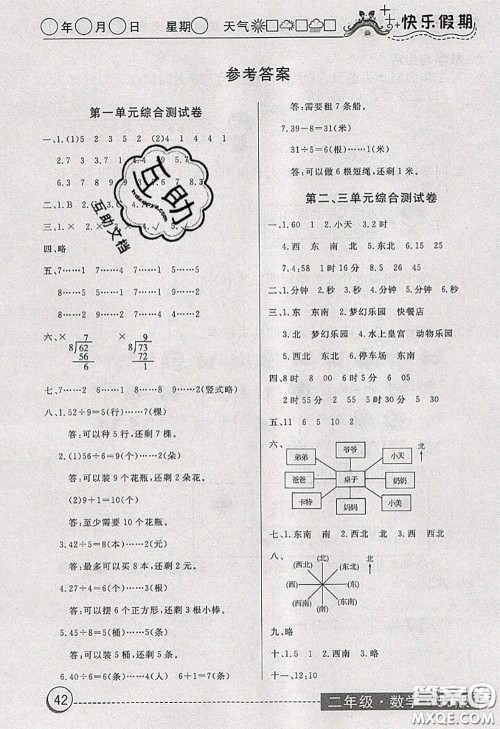 年 月 日 星期 天气
快乐假期
参考答案
第一单元综合测试卷
一、1.(1)5 2 3 5 (2)4 1 2 4
2.7 3.8
二、1.B 2.
三、1.×
四、略
五、7……1 1……7 4……4 1……1
8……2 8……1 5……2 5……3
六、× 7 × 9
8)62 8)73
56 72
6 1
七、7……2 9……1 8……2 9……2(竖式略)
八、1.52÷9=5(行)……7(棵)
答:可以种5行,还剩7棵。
2.(1)56÷6=9(个)……2(朵)
答:可以装9个花瓶,还剩2朵花。
(2)9+1=10(个)
答:至少需要10个花瓶。
3.42÷5=8(本)……2(元)
答:最多可以买8本,还剩2元。
4.27÷4=6(个)……3(根)
答:可以摆6个正方形,还剩3根小棒。
5.30÷5=5(桶)……5(条)
答:可以装5桶,还剩5条。
6.32÷5=6(条)……2(人) 6+1=7(条)
答:需要租7条船。
7.39-8=31(米)
31÷5=6(根)……1(米)
答:可以做6根短绳,还剩1米。
第二、三单元综合测试卷
一、1.30 1 2.小天 3.2时
4.西 东 南 北 5.东北 6.15
7.4:58 1时16分 8.25 45
二、1.分钟 2.秒 3.分钟 4.分钟 5.秒
三、1.东 北 2.东 梦幻乐园 快餐店
3.北 梦幻乐园 4.水上皇宫 动物乐园
5.西北 东北 6.停车场 东南
四、8时 8时16分 8时5分 6时
6时35分 7时05分
五、11 6 5 10 2
六、
弟弟 爷爷 小天 北
爸爸 桌子 奶奶
卡特 妈妈 小美
七、1.东南 南 2.西北 西 北
八、 (北) 北
(西北) (东北)
(西) (东)
(西南) (东南)
(南)
九、略
十、1.5 1.5 西南 3.西
十一、12:10
42
二年级·数学
互助
互助文档